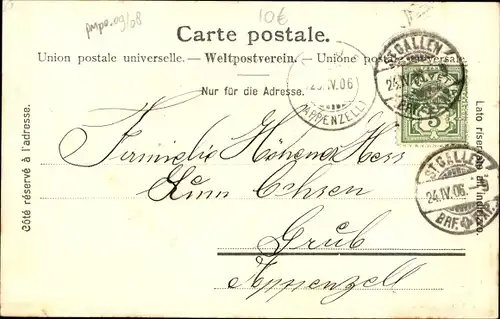 pmpo.09/08
10€
Carte postale.
Union postale universelle. — Weltpostverein. — Unione postale universale.
Nur für die Adresse.
25.IV.06
(APPENZELL)
ST. GALLEN
24.IV.06
BRF.
5
ST. GALLEN
24.IV.06.
BRF.
Côté réservé à l'adresse.
Lato riservato all'indirizzo.
Höhener Hess
Zum Ochsen
Grub
Appenzell